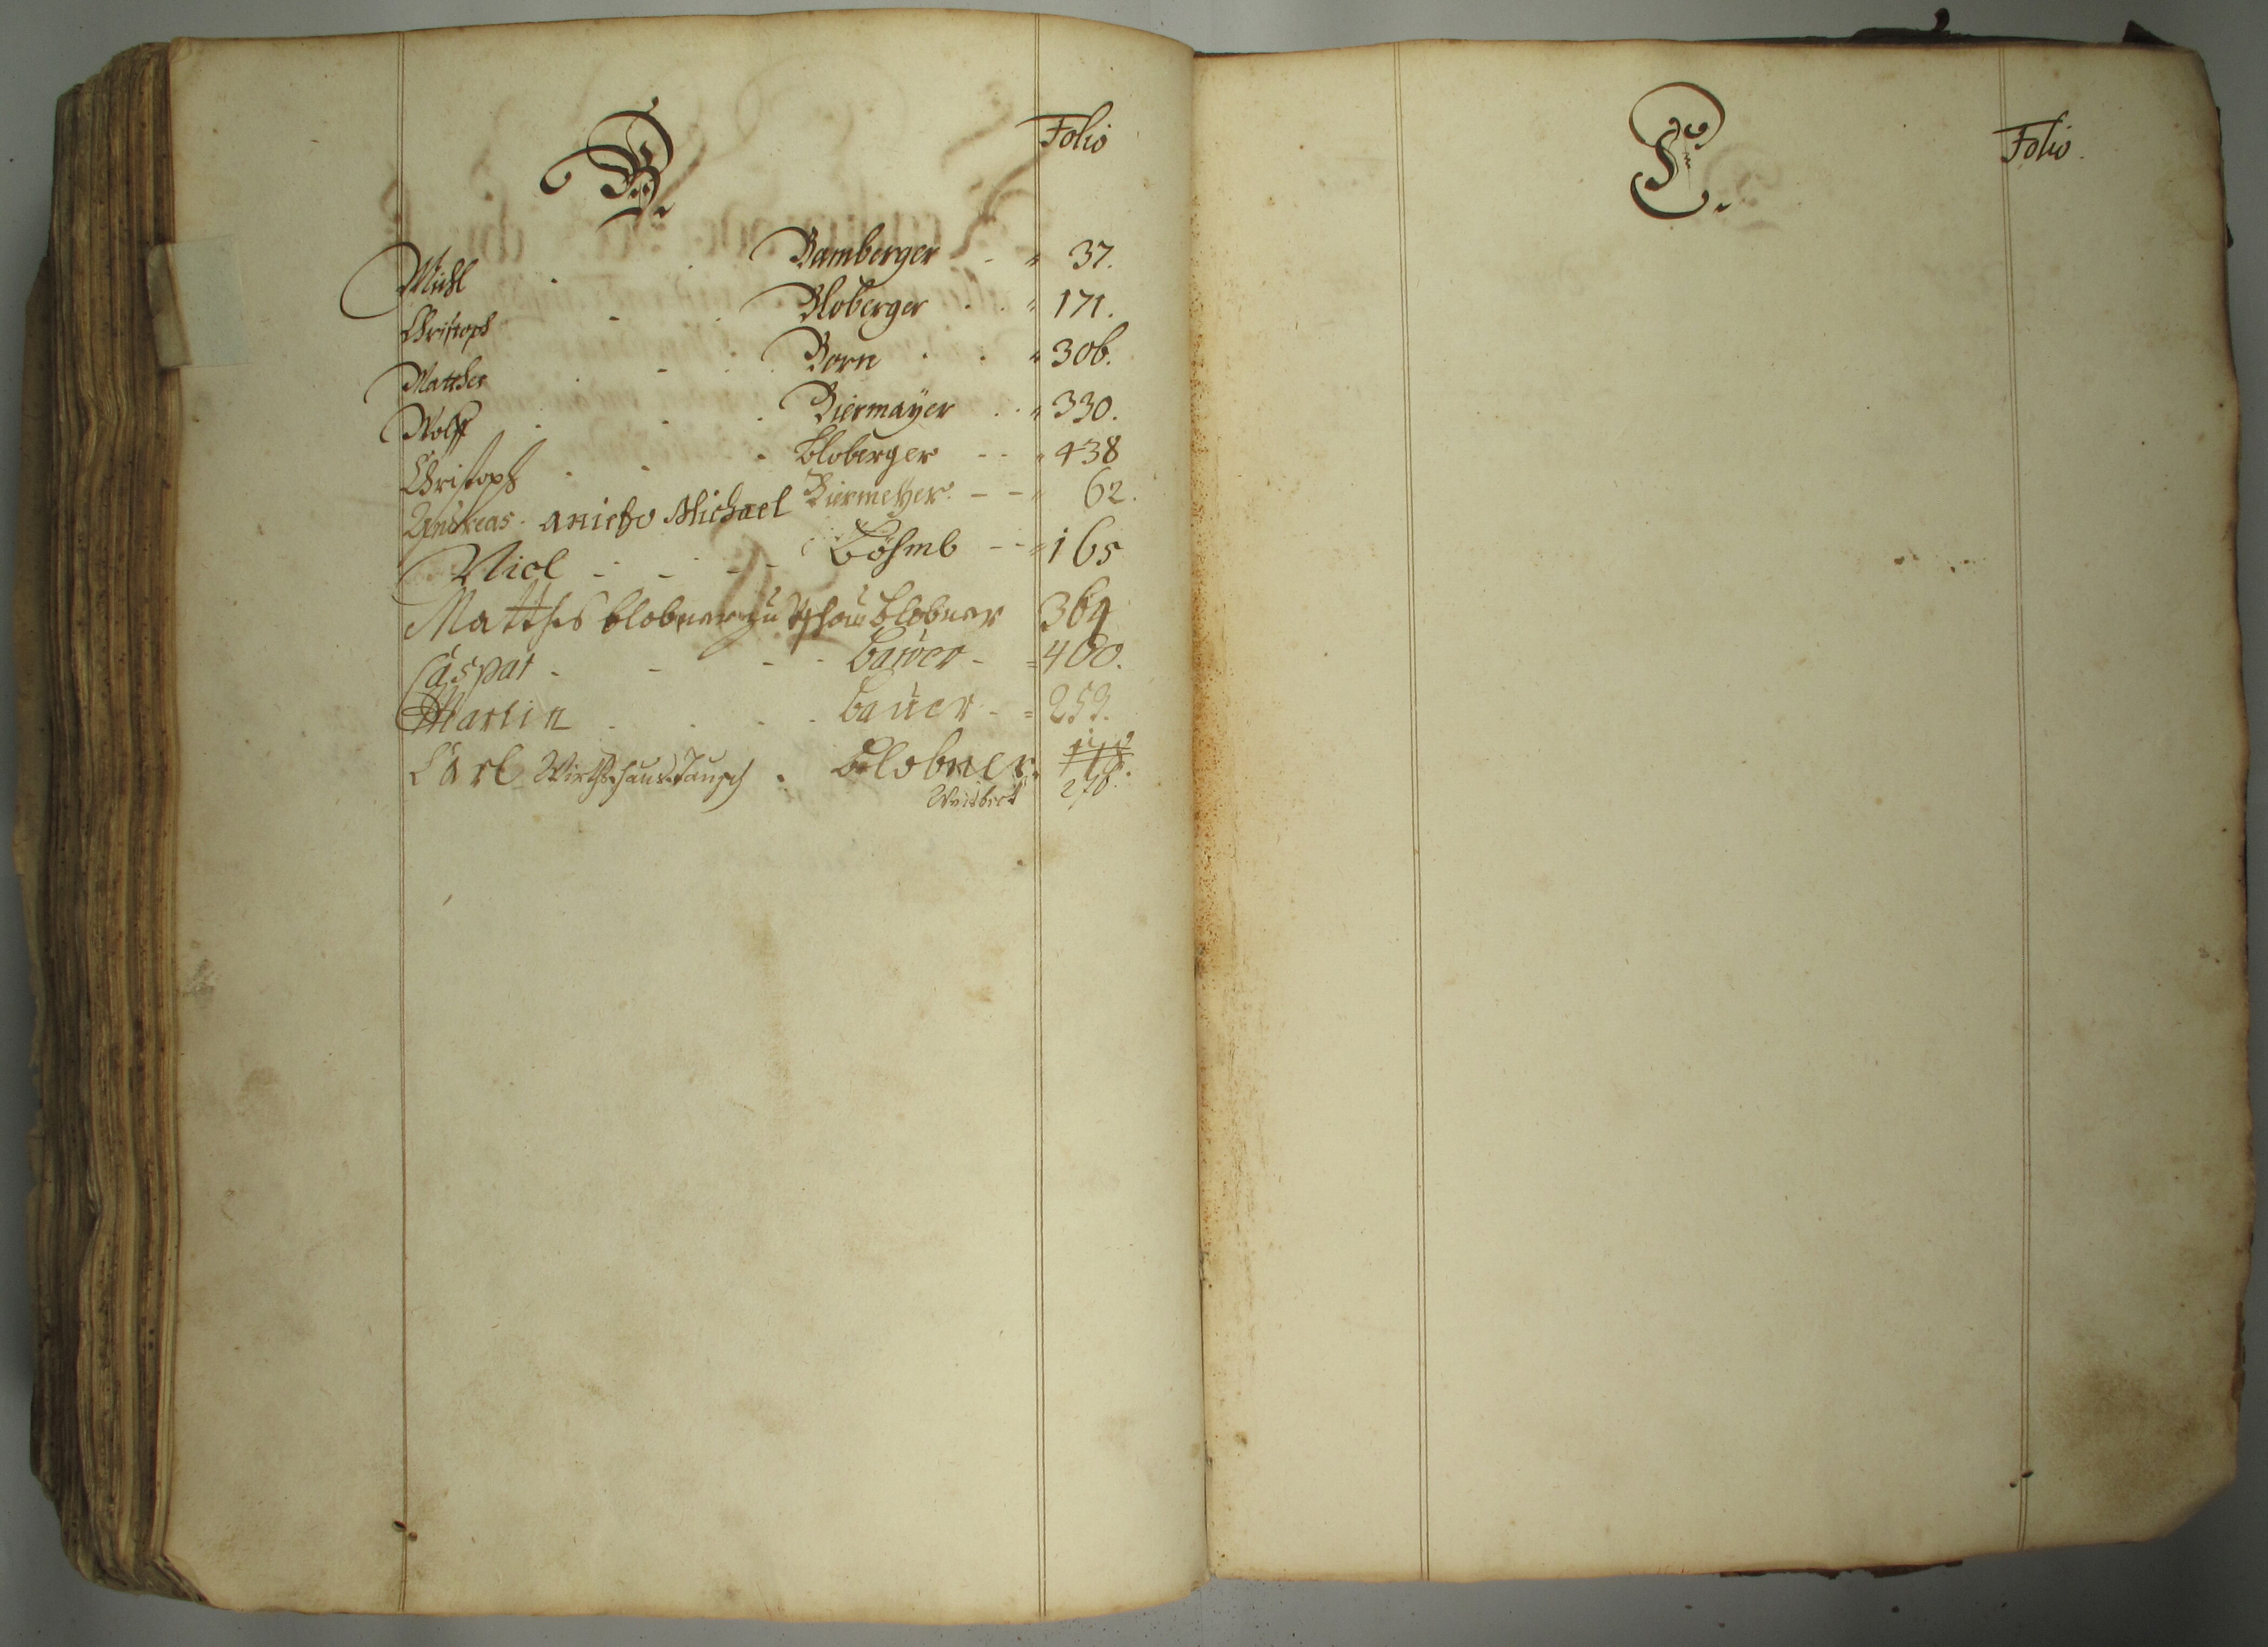 B.
Folio
Michl Bamberger " 37.
Christoph Bloberger " 171.
Matthes Born " 306.
Wolff Biermayer " 330.
Christoph bloberger " 438
Andreas. anietzo Michael Biermeÿer " 62.
Nicl Böhmb = 165
Matthes blobner zu blobner 364
Caspar bawer = 400.
Martin bauer = 253.
Carl Wirthshaus Tausch blobner
270.
C.
Folio.